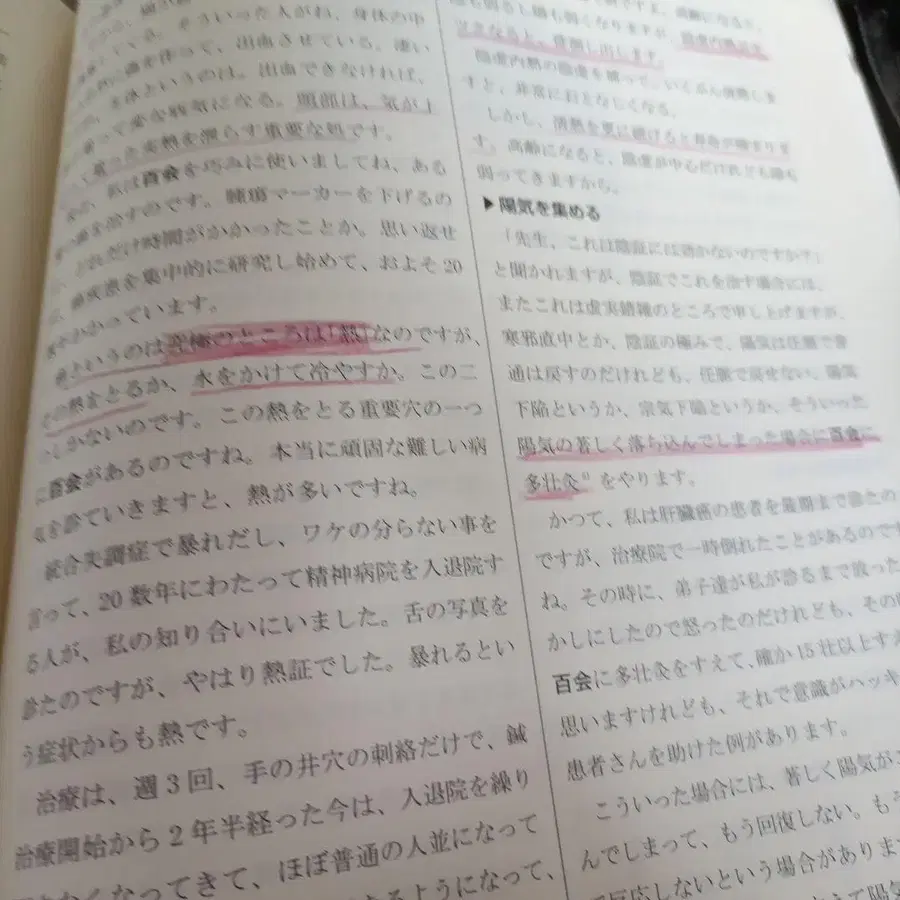 そういった人がね、身体の中
出血させている。凄い
というのは。出血できなければ、
って変な病気になる。頭部は、気が上
った実熱を漏らす重要な処です。
私は百会を巧みに使いましてね、ある
を治すのです。腫瘍マーカーを下げるの
どれだけ時間がかかったことか。思い返せ
癌疾患を集中的に研究し始めて、およそ20
かかっています。
というのは至極のところは「熱」なのですが、
その熱をとるか、水をかけて冷やすか。このこ
しかないのです。この熱をとる重要穴の一つ
に百会があるのですね。本当に頑固な難しい病
気を診ていきますと、熱が多いですね。
統合失調症で暴れだし、ワケの分らない事を
言って、20数年にわたって精神病院を入退院す
る人が、私の知り合いにいました。舌の写真を
診たのですが、やはり熱証でした。暴れるとい
う症状からも熱です。
治療は、週3回、手の井穴の刺絡だけで、鍼
治療開始から2年半経った今は、入退院を繰り
なくなってきて、ほぼ普通の人並になって
るようになって、
陰虚内熱の陰虚を補って、いくぶん清熱しま
すと、非常におとなしくなる。
しかし、清熱を更に続けると寿命が縮まりま
す。高齢になると、陰虚が中心だけれども陽も
弱ってきますから。
▶陽気を集める
「先生、これは陰証には効かないのですか?」
と聞かれますが、陰証でこれを治す場合には、
またこれは虚実補瀉のところで申し上げますが、
寒邪直中とか、陰証の極みで、陽気は任脈で普
通は戻すのだけれども、任脈で戻せない、陽気
下陥というか、宗気下陥というか、そういった
陽気の著しく落ち込んでしまった場合に百会に
多壮灸をやります。
かつて、私は肝臓癌の患者を最期まで診たの
ですが、治療院で一時倒れたことがあるのです
ね。その時に、弟子達が私が診るまで放った
かしにしたので怒ったのだけれども、その
百会に多壮灸をすえて、確か15壮以上すえ
思いますけれども、それで意識がハッキ
患者さんを助けた例があります。
こういった場合には、著しく陽気が
んでしまって、もう回復しない。も
反応しないという場合がありま